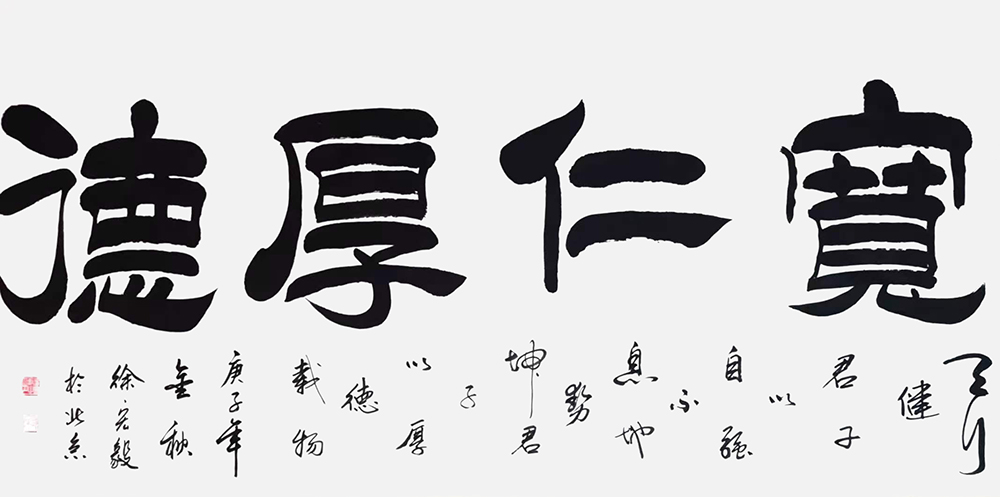 寬仁厚德
天行
健
君子
以
自强
不
息地
势
坤君
子
以厚
德
载物
庚子年
金秋
徐宏毅
於北京